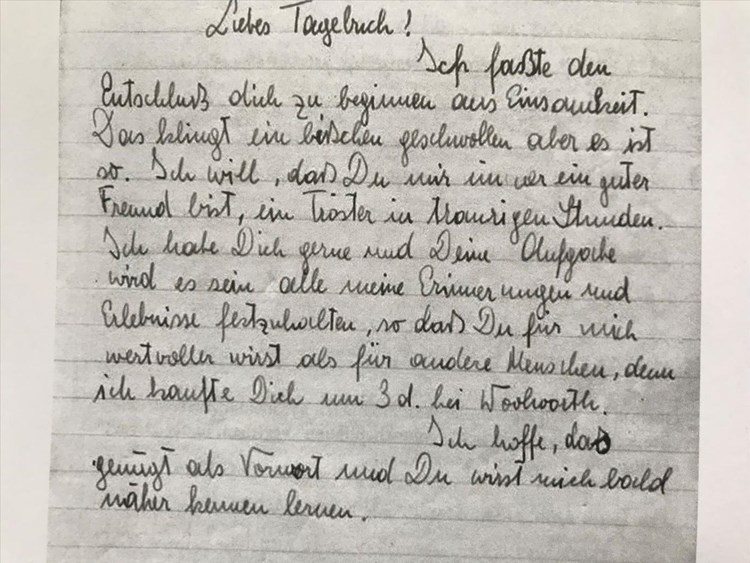 Liebes Tagebuch!
Ich faßte den
Entschluß dich zu beginnen aus Einsamkeit.
Das klingt ein bißchen geschwollen aber es ist
so. Ich will, daß Du mir immer ein guter
Freund bist, ein Tröster in traurigen Stunden.
Ich habe Dich gerne und Deine Aufgabe
wird es sein alle meine Erinnerungen und
Erlebnisse festzuhalten, so daß Du für mich
wertvoller wirst als für andere Menschen, denn
ich kaufte Dich um 3 d. bei Woolworth.
Ich hoffe, das
genügt als Vorwort und Du wirst mich bald
näher kennen lernen.